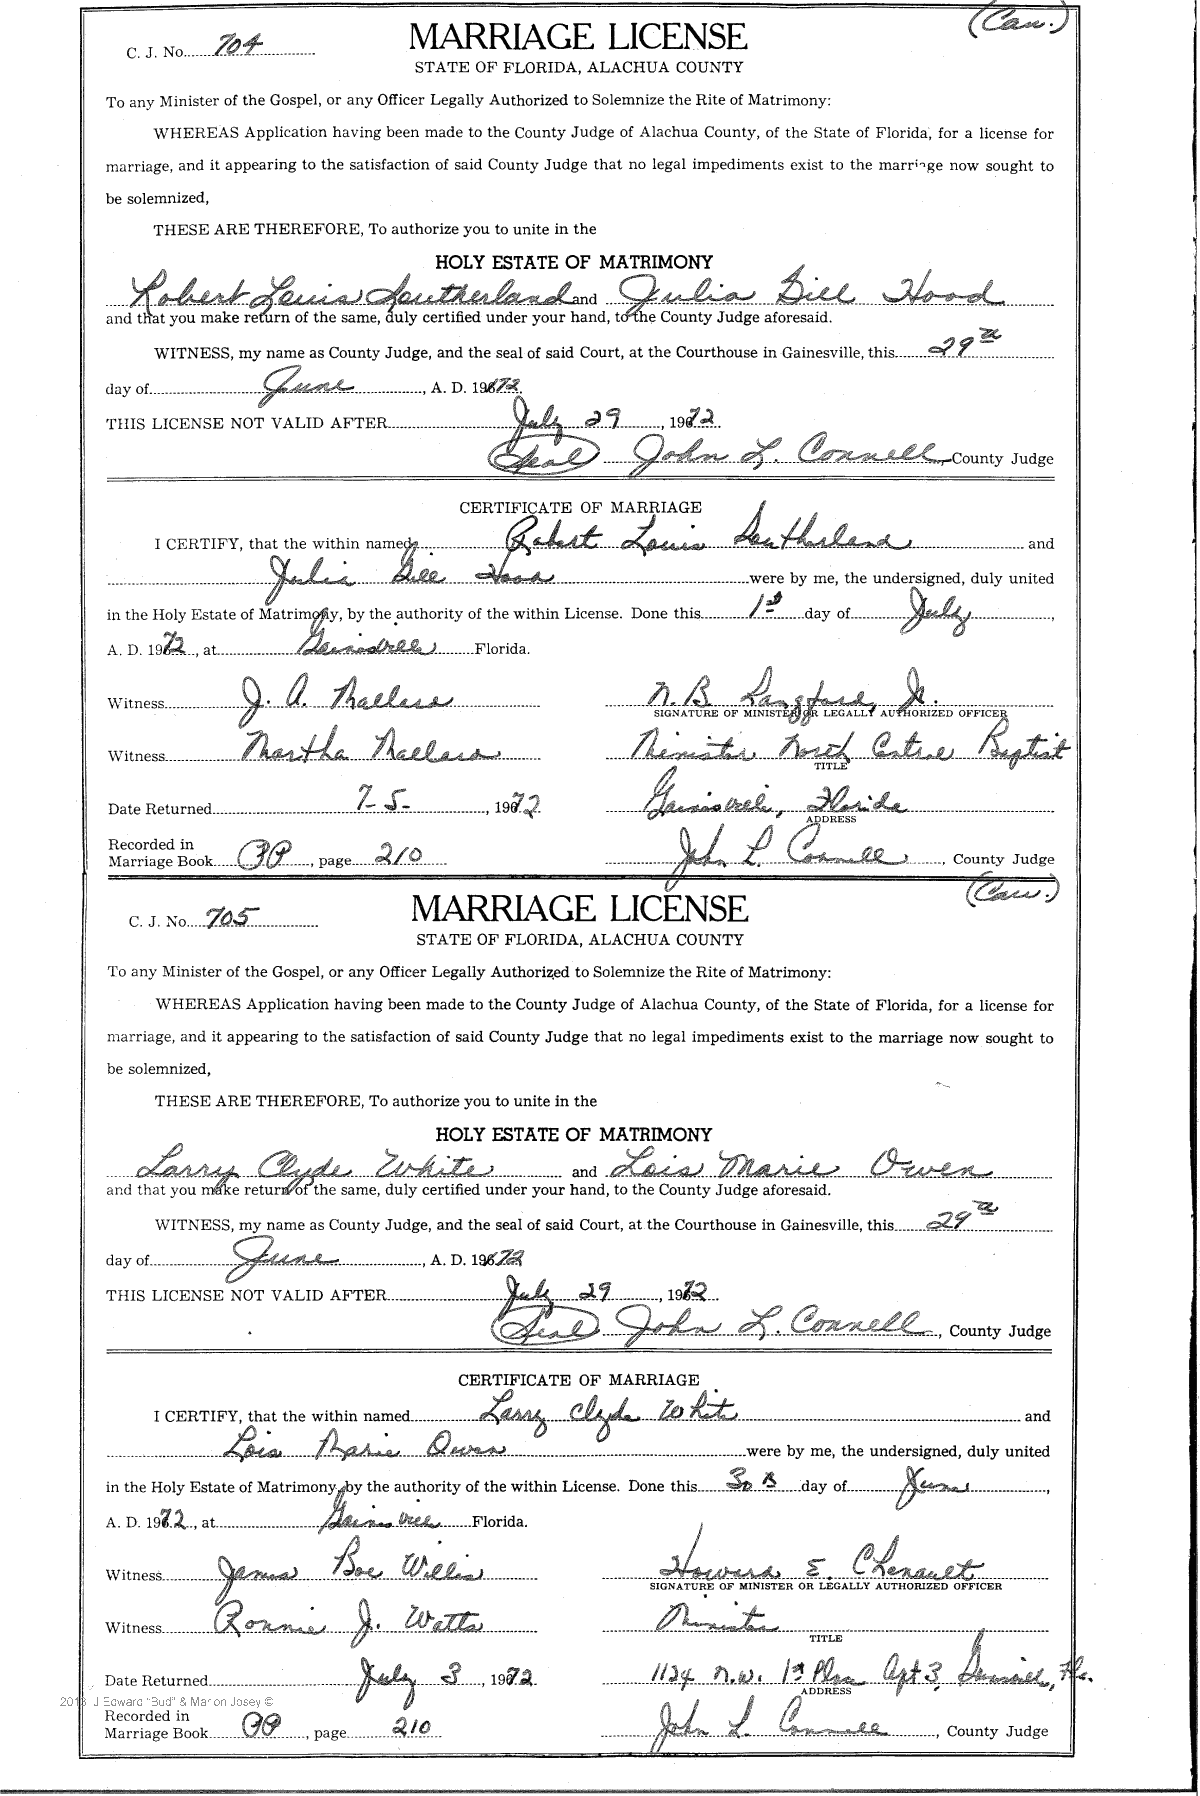 (Cau.)
C. J. No. 704 MARRIAGE LICENSE
STATE OF FLORIDA, ALACHUA COUNTY
To any Minister of the Gospel, or any Officer Legally Authorized to Solemnize the Rite of Matrimony:
WHEREAS Application having been made to the County Judge of Alachua County, of the State of Florida, for a license for
marriage, and it appearing to the satisfaction of said County Judge that no legal impediments exist to the marriage now sought to
be solemnized,
THESE ARE THEREFORE, To authorize you to unite in the
HOLY ESTATE OF MATRIMONY
Robert Louis Southerland and Julia Gill Hood
and that you make return of the same, duly certified under your hand, to the County Judge aforesaid.
WITNESS, my name as County Judge, and the seal of said Court, at the Courthouse in Gainesville, this 29th
day of June, A. D. 1972
THIS LICENSE NOT VALID AFTER July 29, 1972
(Seal) John L. Connell, County Judge
CERTIFICATE OF MARRIAGE
I CERTIFY, that the within named Robert Louis Southerland and
Julia Gill Hood were by me, the undersigned, duly united
in the Holy Estate of Matrimony, by the authority of the within License. Done this 1st day of July,
A. D. 1972, at Gainesville Florida.
Witness J. A. N. B. Langford, Jr.
SIGNATURE OF MINISTER OR LEGALLY AUTHORIZED OFFICER
Witness Martha Minister North Central Baptist
TITLE
Date Returned 7-5-, 1972 Gainesville, Florida
ADDRESS
Recorded in
Marriage Book PP, page 210 John L. Connell, County Judge
(Cau.)
C. J. No. 705 MARRIAGE LICENSE
STATE OF FLORIDA, ALACHUA COUNTY
To any Minister of the Gospel, or any Officer Legally Authorized to Solemnize the Rite of Matrimony:
WHEREAS Application having been made to the County Judge of Alachua County, of the State of Florida, for a license for
marriage, and it appearing to the satisfaction of said County Judge that no legal impediments exist to the marriage now sought to
be solemnized,
THESE ARE THEREFORE, To authorize you to unite in the
HOLY ESTATE OF MATRIMONY
Larry Clyde White and Lois Marie Owen
and that you make return of the same, duly certified under your hand, to the County Judge aforesaid.
WITNESS, my name as County Judge, and the seal of said Court, at the Courthouse in Gainesville, this 29th
day of June, A. D. 1972
THIS LICENSE NOT VALID AFTER July 29, 1972
(Seal) John L. Connell, County Judge
CERTIFICATE OF MARRIAGE
I CERTIFY, that the within named Larry Clyde White and
Lois Marie Owen were by me, the undersigned, duly united
in the Holy Estate of Matrimony, by the authority of the within License. Done this 30th day of June,
A. D. 1972, at Gainesville Florida.
Witness James Boe Willis Howard E. Chenault
SIGNATURE OF MINISTER OR LEGALLY AUTHORIZED OFFICER
Witness Ronnie J. Watts Minister
TITLE
Date Returned July 3, 1972 1124 N.W. 1st Place Apt 3, Gainesville, Fla.
ADDRESS
J Edward "Bud" & Marion Josey ©
Recorded in
Marriage Book PP, page 210 John L. Connell, County Judge